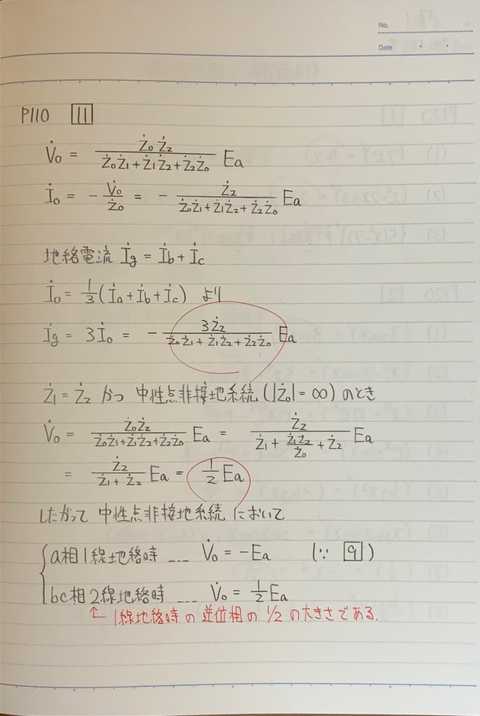 No.
Date
P110 [11]
V̇₀ = Ż₀Ż₂ / (Ż₀Ż₁+Ż₁Ż₂+Ż₂Ż₀) Ea
İ₀ = − V̇₀/Ż₀ = − Ż₂ / (Ż₀Ż₁+Ż₁Ż₂+Ż₂Ż₀) Ea
地絡電流 İg = İb + İc
İ₀ = 1/3 (İa + İb + İc) より
İg = 3İ₀ = − 3Ż₂ / (Ż₀Ż₁+Ż₁Ż₂+Ż₂Ż₀) Ea
Ż₁ = Ż₂ かつ 中性点非接地系統 (|Ż₀| = ∞) のとき
V̇₀ = Ż₀Ż₂ / (Ż₀Ż₁+Ż₁Ż₂+Ż₂Ż₀) Ea = Ż₂ / (Ż₁ + Ż₁Ż₂/Ż₀ + Ż₂) Ea
= Ż₂ / (Ż₁+Ż₂) Ea = 1/2 Ea
したがって 中性点非接地系統 において
a相1線地絡時 ---- V̇₀ = −Ea (∵ [9])
bc相2線地絡時 ---- V̇₀ = 1/2 Ea
↑ 1線地絡時の逆位相の1/2の大きさである.